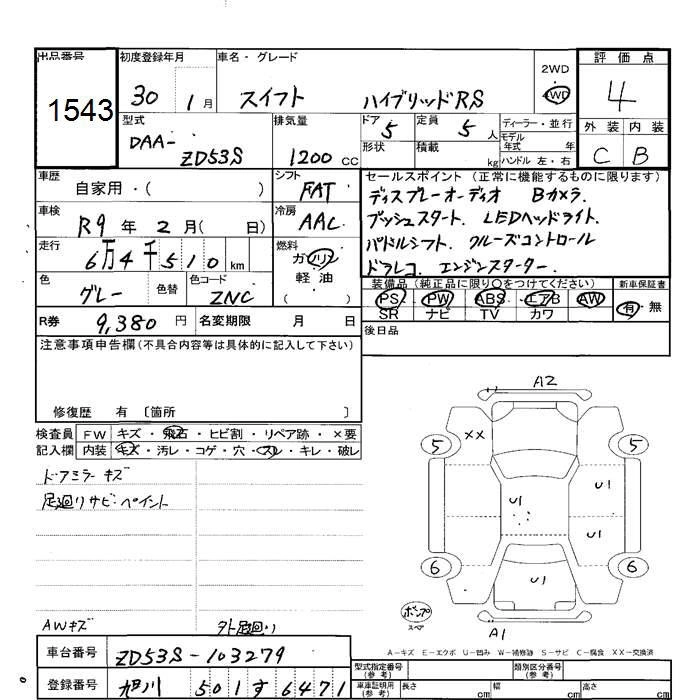 出品番号 初度登録年月 車名・グレード 2WD 評価点
1543 30 1月 スイフト ハイブリッドRS 4WD 4
型式 排気量 ドア 5 定員 5人 ディーラー・並行 外装 内装
DAA- ZD53S 1200cc 形状 積載 kg モデル年式 年 ハンドル 左・右 C B
車歴 自家用・( ) シフト FAT セールスポイント (正常に機能するものに限ります)
車検 R9年2月( 日) 冷房 AAC ディスプレーオーディオ Bカメラ.
プッシュスタート. LEDヘッドライト.
走行 6万4千510km 燃料 ガソリン 軽油 ( ) パドルシフト. クルーズコントロール
ドラレコ. エンジンスターター.
色 グレー 色替 色コード ZNC 装備品(純正品に限り○をつけてください) 新車保証書
PS PW ABS エアB AW 有・無
SR ナビ TV カワ
R券 9,380円 名変期限 月 日 後日品
注意事項申告欄(不具合内容等は具体的に記入して下さい)
修復歴 有 〔箇所 〕
検査員 FW キズ・飛石・ヒビ割・リペア跡・×要
記入欄 内装 キズ・汚レ・コゲ・穴・スレ・キレ・破レ
ドアミラーキズ
足廻りサビ・ペイント
AWキズ 外足廻り
A2
XX
5 5
U1
U1
U1
6 6
U1
ポンプ
スペア
A1
A-キズ E-エクボ U-凹み W-補修跡 S-サビ C-腐食 XX-交換済
車台番号 ZD53S-103279
登録番号 旭川 501 す 6471
型式指定番号 (参考) 類別区分番号 (参考)
車庫証明用 (参考) 長さ cm 幅 cm 高さ cm